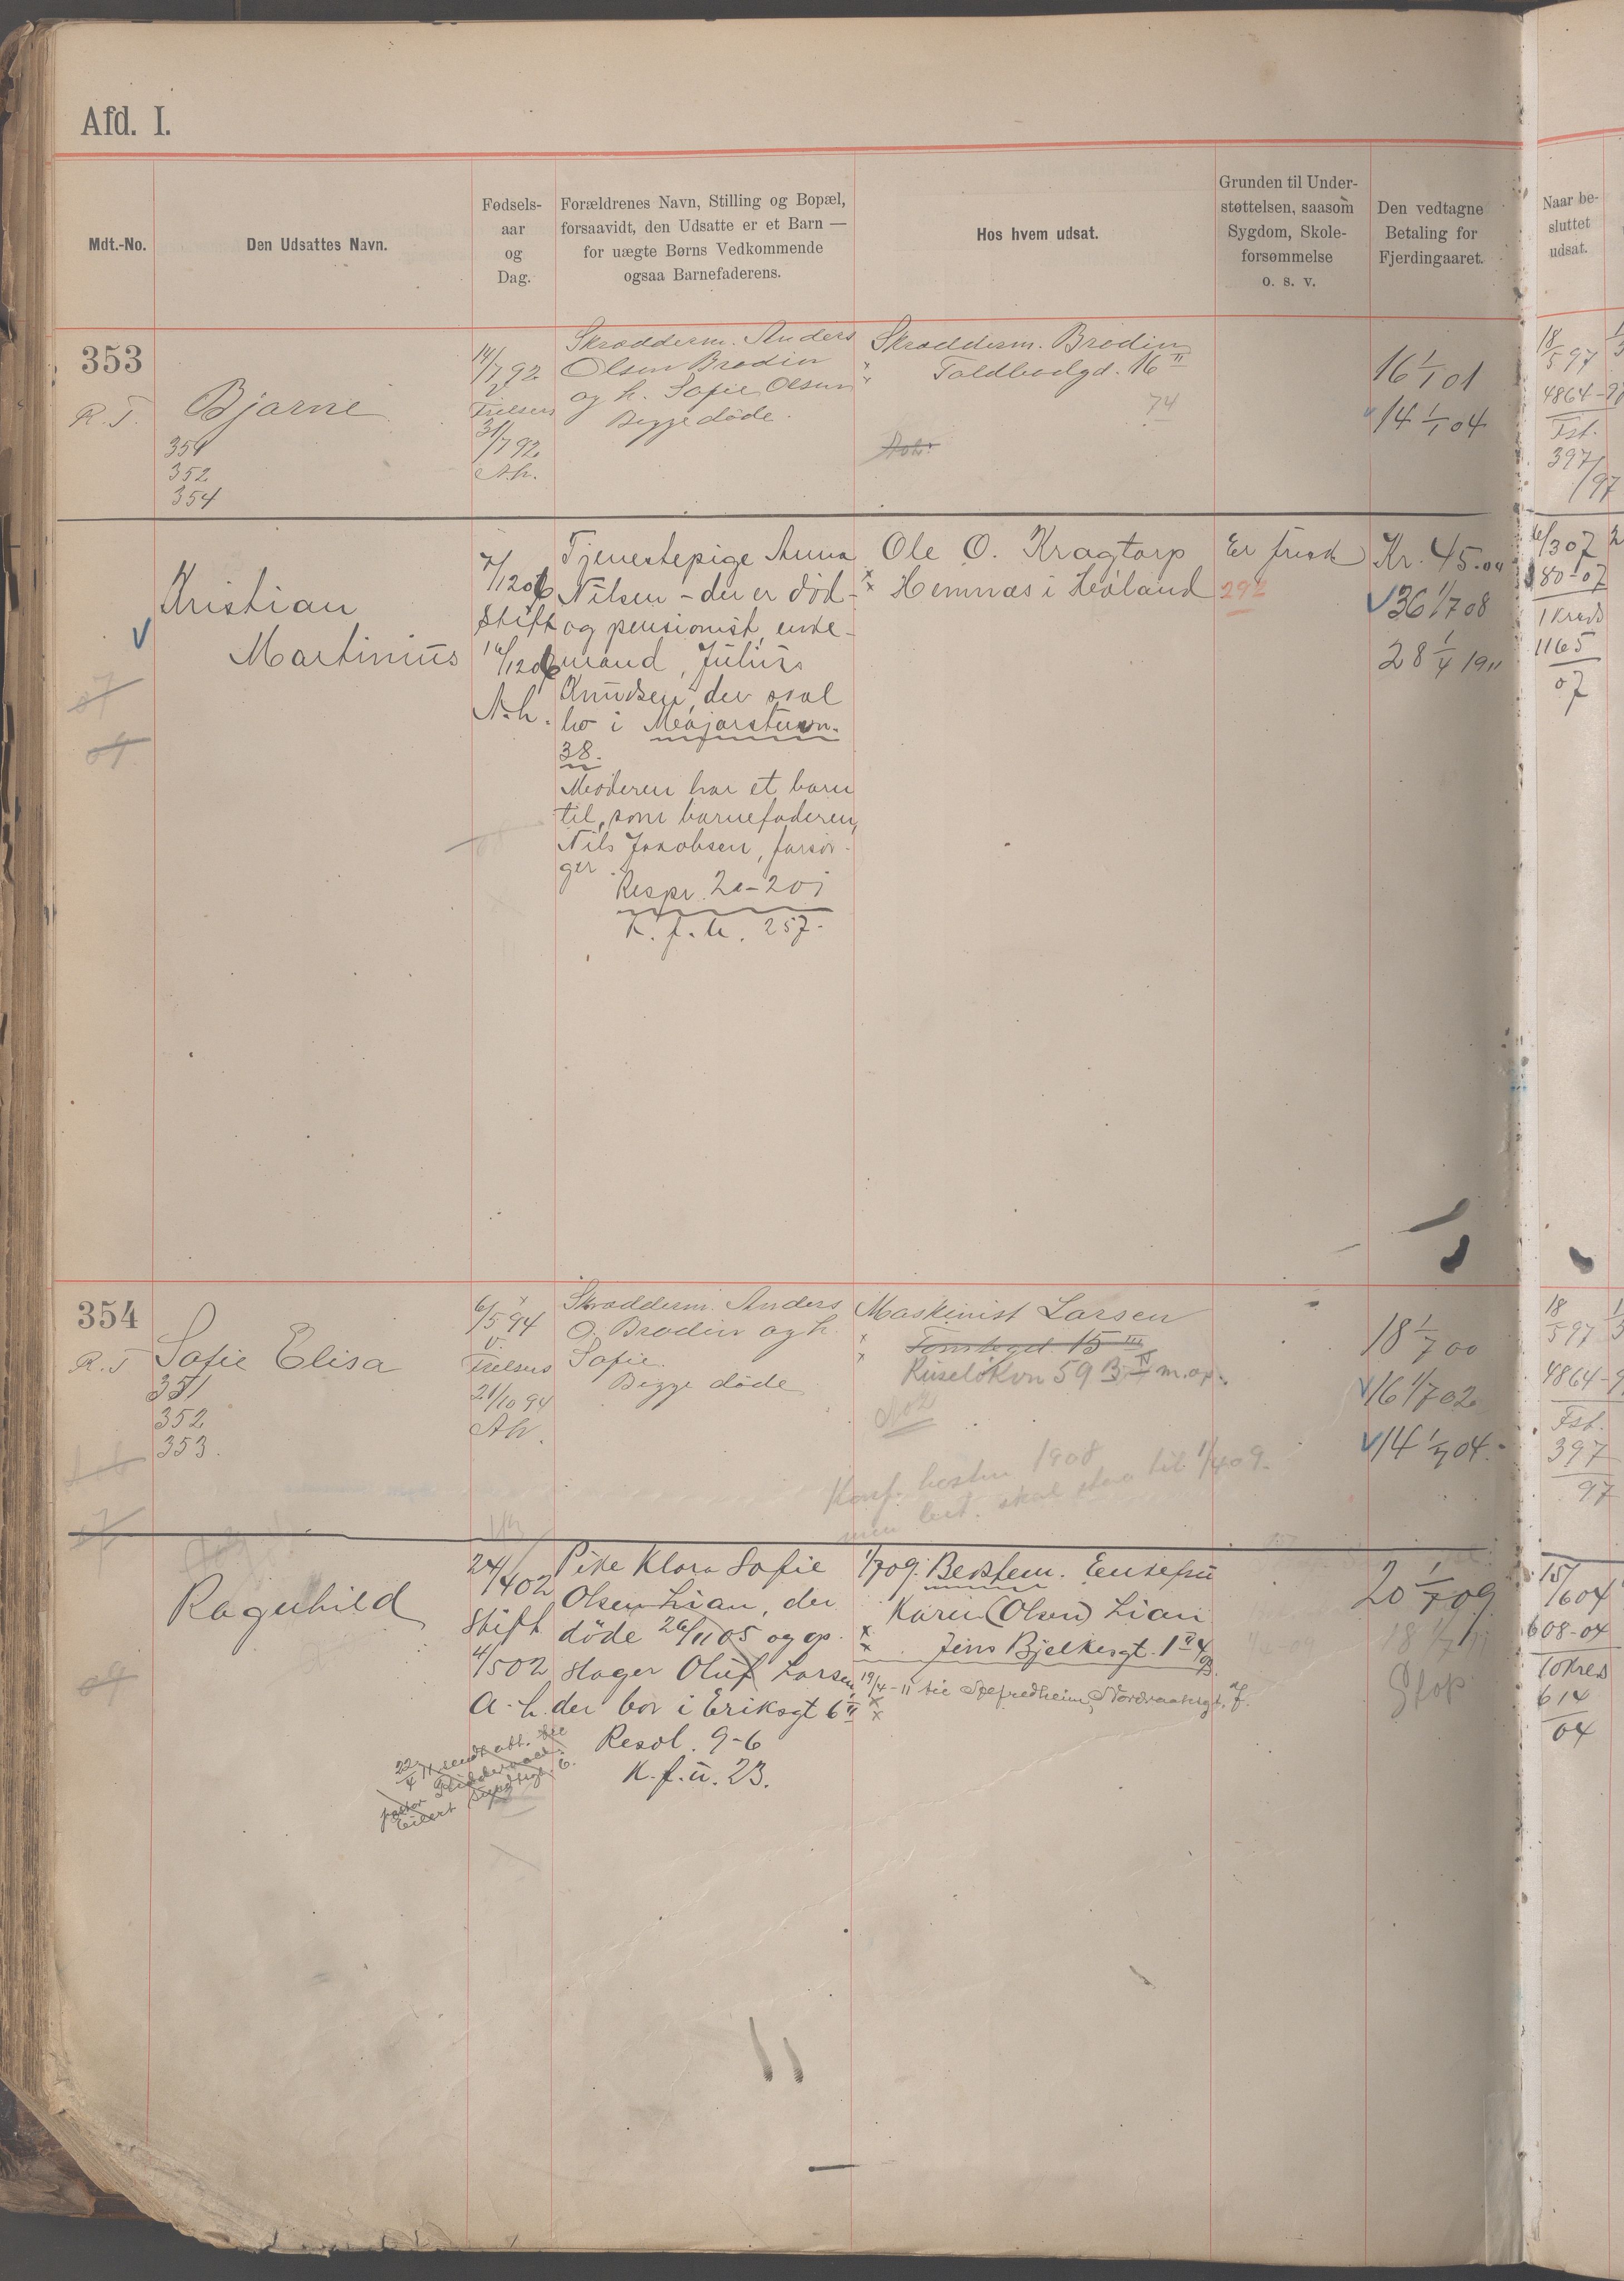 Afd. I.
Mdt.-No.
Den Udsattes Navn.
Fødsels-
aar
og
Dag.
Forældrenes Navn, Stilling og Bopæl,
forsaavidt, den Udsatte er et Barn —
for uægte Børns Vedkommende
ogsaa Barnefaderens.
Hos hvem udsat.
Grunden til Under-
støttelsen, saasom
Sygdom, Skole-
forsømmelse
o. s. v.
Den vedtagne
Betaling for
Fjerdingaaret.
Naar be-
sluttet
udsat.
353
R. T.
Bjarne
351
352
354
14/7 92
Frelsers
31/7 92
A.h.
Skrædderm. Anders
Olsen Brodin
og h. Sofie Olsen
Begge døde.
Skrædderm. Brodin
Toldbodgd. 16 II
74
16 1/1 01
14 1/1 04
18/5 97
4864-97
Fst.
397/97
Kristian
Martinius
7/12 06
Stift
16/12 06
A.h.
Tjenestepige Anna
Nilsen - der er død -
og pensionist, enke-
mand, Julius
Knudsen, der skal
bo i Majorstuvn.
38.
Moderen har et barn
til, som barnefaderen,
Nils Jakobsen, forsør-
ger.
Respr. 20-201
K. f. u. 257.
Ole O. Kragtorp
Hemnæs i Høland
Er frisk
292
Kr. 45.00
36 1/7 08
28 1/4 1911
6/3 07
180-07
1 Kreds
1165
07
07
09
354
R. T
Sofie Elisa
351
352
353.
6/5 94
v.
Frelsers
21/10 94
A.h.
Skrædderm. Anders
O. Brodin og h.
Sofie.
Begge døde
Maskinist Larsen
Tomtegd 15 III
Ruseløkvn 59 B IV m. op.
Konf. høsten 1908
men bet. skal staa til 1/4 09.
18 1/7 00
16 1/7 02
14 1/7 04.
18/5 97
4864-9
Fst.
397
97
Ragnhild
09
24/4 02
Stift
4/5 02
A-h.
Pike Klara Sofie
Olsen Lian, der
døde 26/11 05 og op-
slager Oluf Larsen
der bor i Eriksgt 6 II
Resol. 9-6
K. f. u. 23.
1/7 09. Bestem. Enkefru
Karen (Olsen) Lian
Jens Bjelkesgt. 1 II
19/4-11 til
20 1/7 09
18 1/7 11
Stop
15/6 04
608-04
10 Kreds
614
04